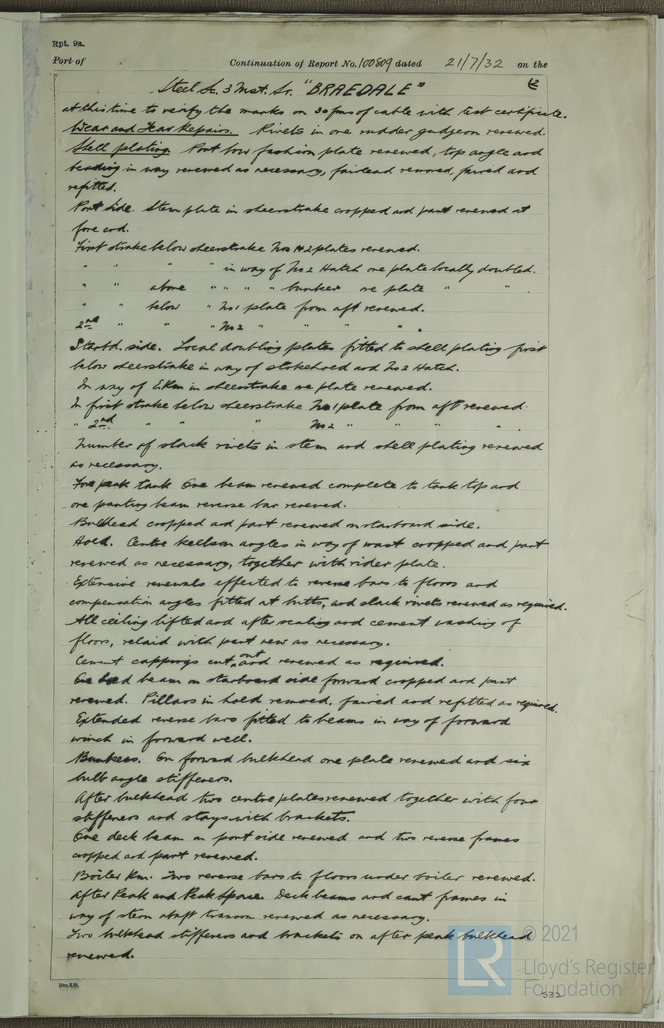 Rpt. 9a.
Port of Continuation of Report No. 100809 dated 21/7/32 on the
Steel Sc. 3 Mst. Sr. "BRAEDALE"
at this time to verify the marks on 30 fms of cable with test certificate.
Wear and Tear Repairs. Rivets in one rudder gudgeon renewed.
Shell plating Port bow fashion plate renewed, top angle and
beading in way renewed as necessary, fairlead removed, faired and
refitted.
Port Side. Stem plate in sheerstrake cropped and part renewed at
fore end.
First strake below sheerstrake Nos 1 & 2 plates renewed.
" " " " in way of No 2 Hatch one plate locally doubled.
" " above " " " bunker one plate " "
" " below " No 1 plate from aft renewed.
2nd " " " No 2 " " " "
Starbd. side. Local doubling plates fitted to shell plating first
below sheerstrake in way of stokehold and No 2 Hatch.
In way of E Rm in sheerstrake one plate renewed.
In first strake below sheerstrake No 1 plate from aft renewed.
" 2nd " " " No 2 " " " "
Number of slack rivets in stem and shell plating renewed
as necessary.
Fore peak tank One beam renewed complete to tank top and
one panting beam reverse bar renewed.
Bulkhead cropped and part renewed on starboard side.
Hold. Centre keelson angles in way of mast cropped and part
renewed as necessary, together with rider plate.
Extensive renewals effected to reverse bars to floors and
compensation angles fitted at butts, and slack rivets renewed as required.
All ceiling lifted and after scaling and cement washing of
floors, relaid with part new as necessary.
Cement cappings cut out and renewed as required.
One hold beam on starboard side forward cropped and part
renewed. Pillars in hold removed, faired and refitted as required.
Extended reverse bars fitted to beams in way of forward
winch in forward well.
Bunkers. On forward bulkhead one plate renewed and six
bulb angle stiffeners.
After bulkhead two centre plates renewed together with four
stiffeners and stays with brackets.
One deck beam on port side renewed and two reverse frames
cropped and part renewed.
Boiler Rm. Two reverse bars to floors under boiler renewed.
After Peak and Peak Space. Deck beams and cant frames in
way of stern abaft transom renewed as necessary.
Two bulkhead stiffeners and brackets on after peak bulkhead
renewed.
LR
© 2021
Lloyd's Register
Foundation